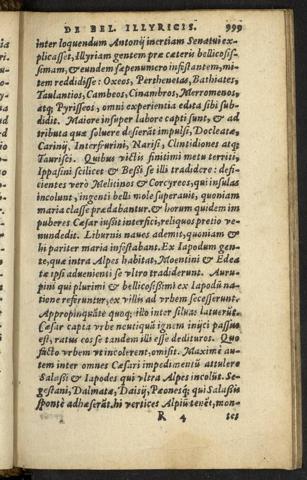 DE BEL. ILLYRICIS. 999
inter loquendum Antonij inertiam Senatui ex-
plicasset, Illyriam gentem præ cæteris bellicosis-
simam, & eundem sæpenumero infestantem, mi-
tem reddidisse: Oxeos, Perthenetas, Bathiates,
Taulantios, Cambeos, Cinambros, Merromenos,
atq; Pyrisseos, omni experientia edita sibi subi-
didit. Maiore insuper labore capti sunt, & ad
tributa quæ soluere desierāt impulsi, Docleatæ,
Carinij, Interfrurini, Narisi, Clintidiones atq;
Taurisci. Quibus victis finitimi metu territi,
Ippasini scilicet & Bessi se illi tradidere: defi-
cientes verò Melitinos & Corcyreos, qui insulas
incolunt, ingenti belli mole superauit, quoniam
maria classe prædabantur. & horum quidem im
puberes Cæsar iußit interfici, reliquos pretio ve-
nundedit. Liburnis naues ademit, quoniam &
hi pariter maria infestabant. Ex Iapodum gen-
te, quæ intra Alpes habitat, Moentini & Edea
tæ ipsi aduenienti se vltro tradiderunt. Auru-
pini qui plurimi & bellicosißimi ex Iapodū na-
tione referuntur, ex villis ad vrbem secesserunt.
Appropinquāte quoq; illo inter siluas latuerūt.
Cæsar capta vrbe neutiquā ignem inijci passus
est, ratus eos se tandem illi esse dedituros. Quo
facto vrbem vt incolerent, omisit. Maximè au-
tem inter omnes Cæsari impedimentū attulere
Salaßi & Iapodes qui vltra Alpes incolūt. Se-
gestani, Dalmatæ, Daisij, Pæonesq; qui Salaßiis
sponte adhæserāt. hi vertices Alpiū tenēt, mon-
R 4 tes